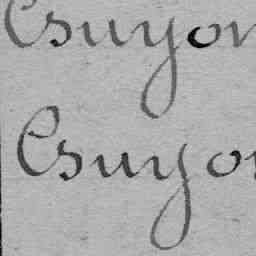 Csuyon
Csuyo